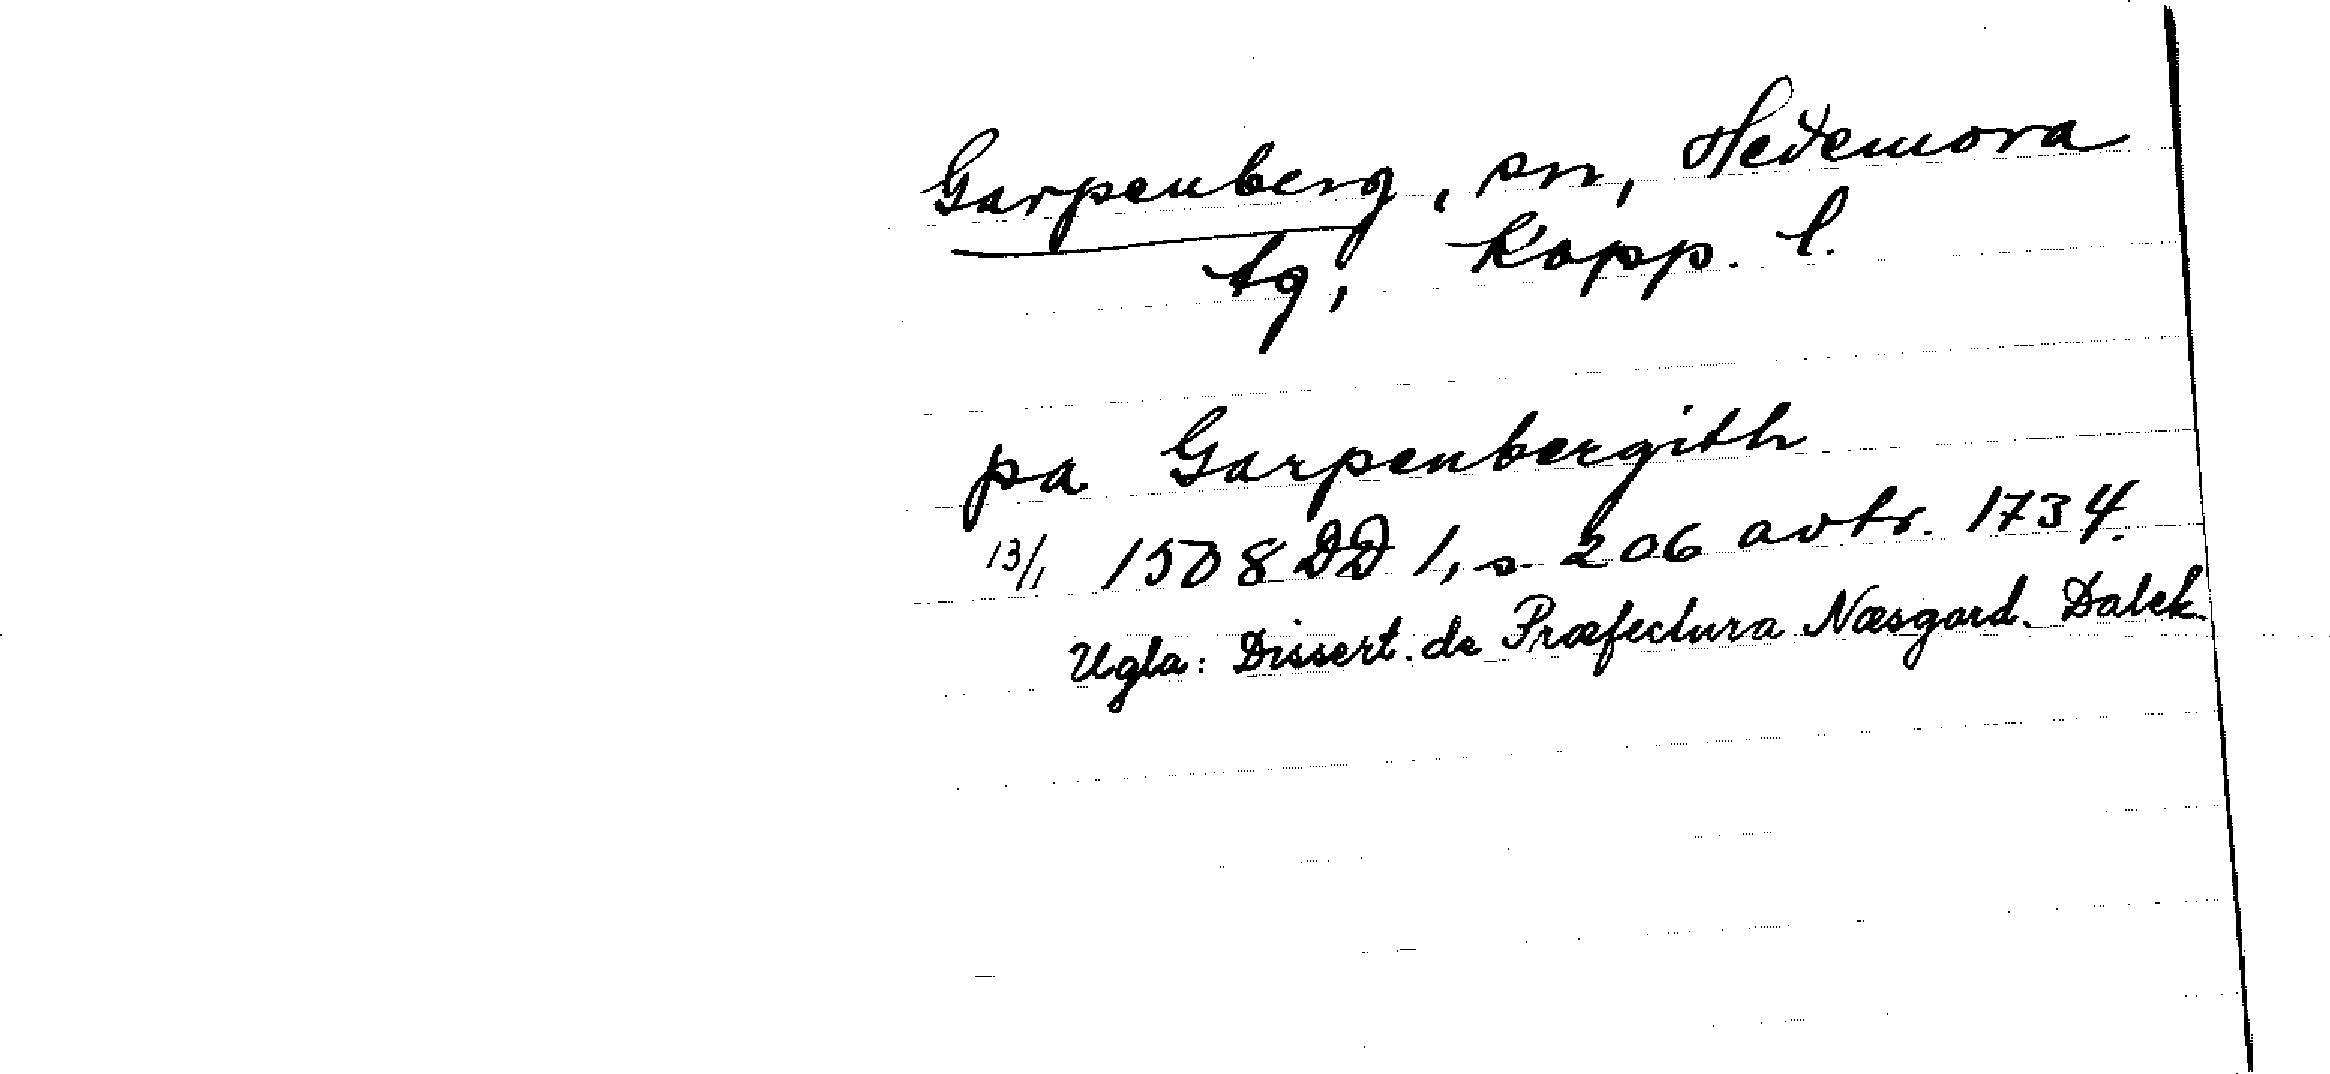 Garpenberg, sn, Hedemora
tg, Kopp. l.
pa Garpenbergith
13/1 1508 DD 1, s. 206 avtr. 1734.
Ugla: Dissert. de Præfectura Næsgard. Dalek.